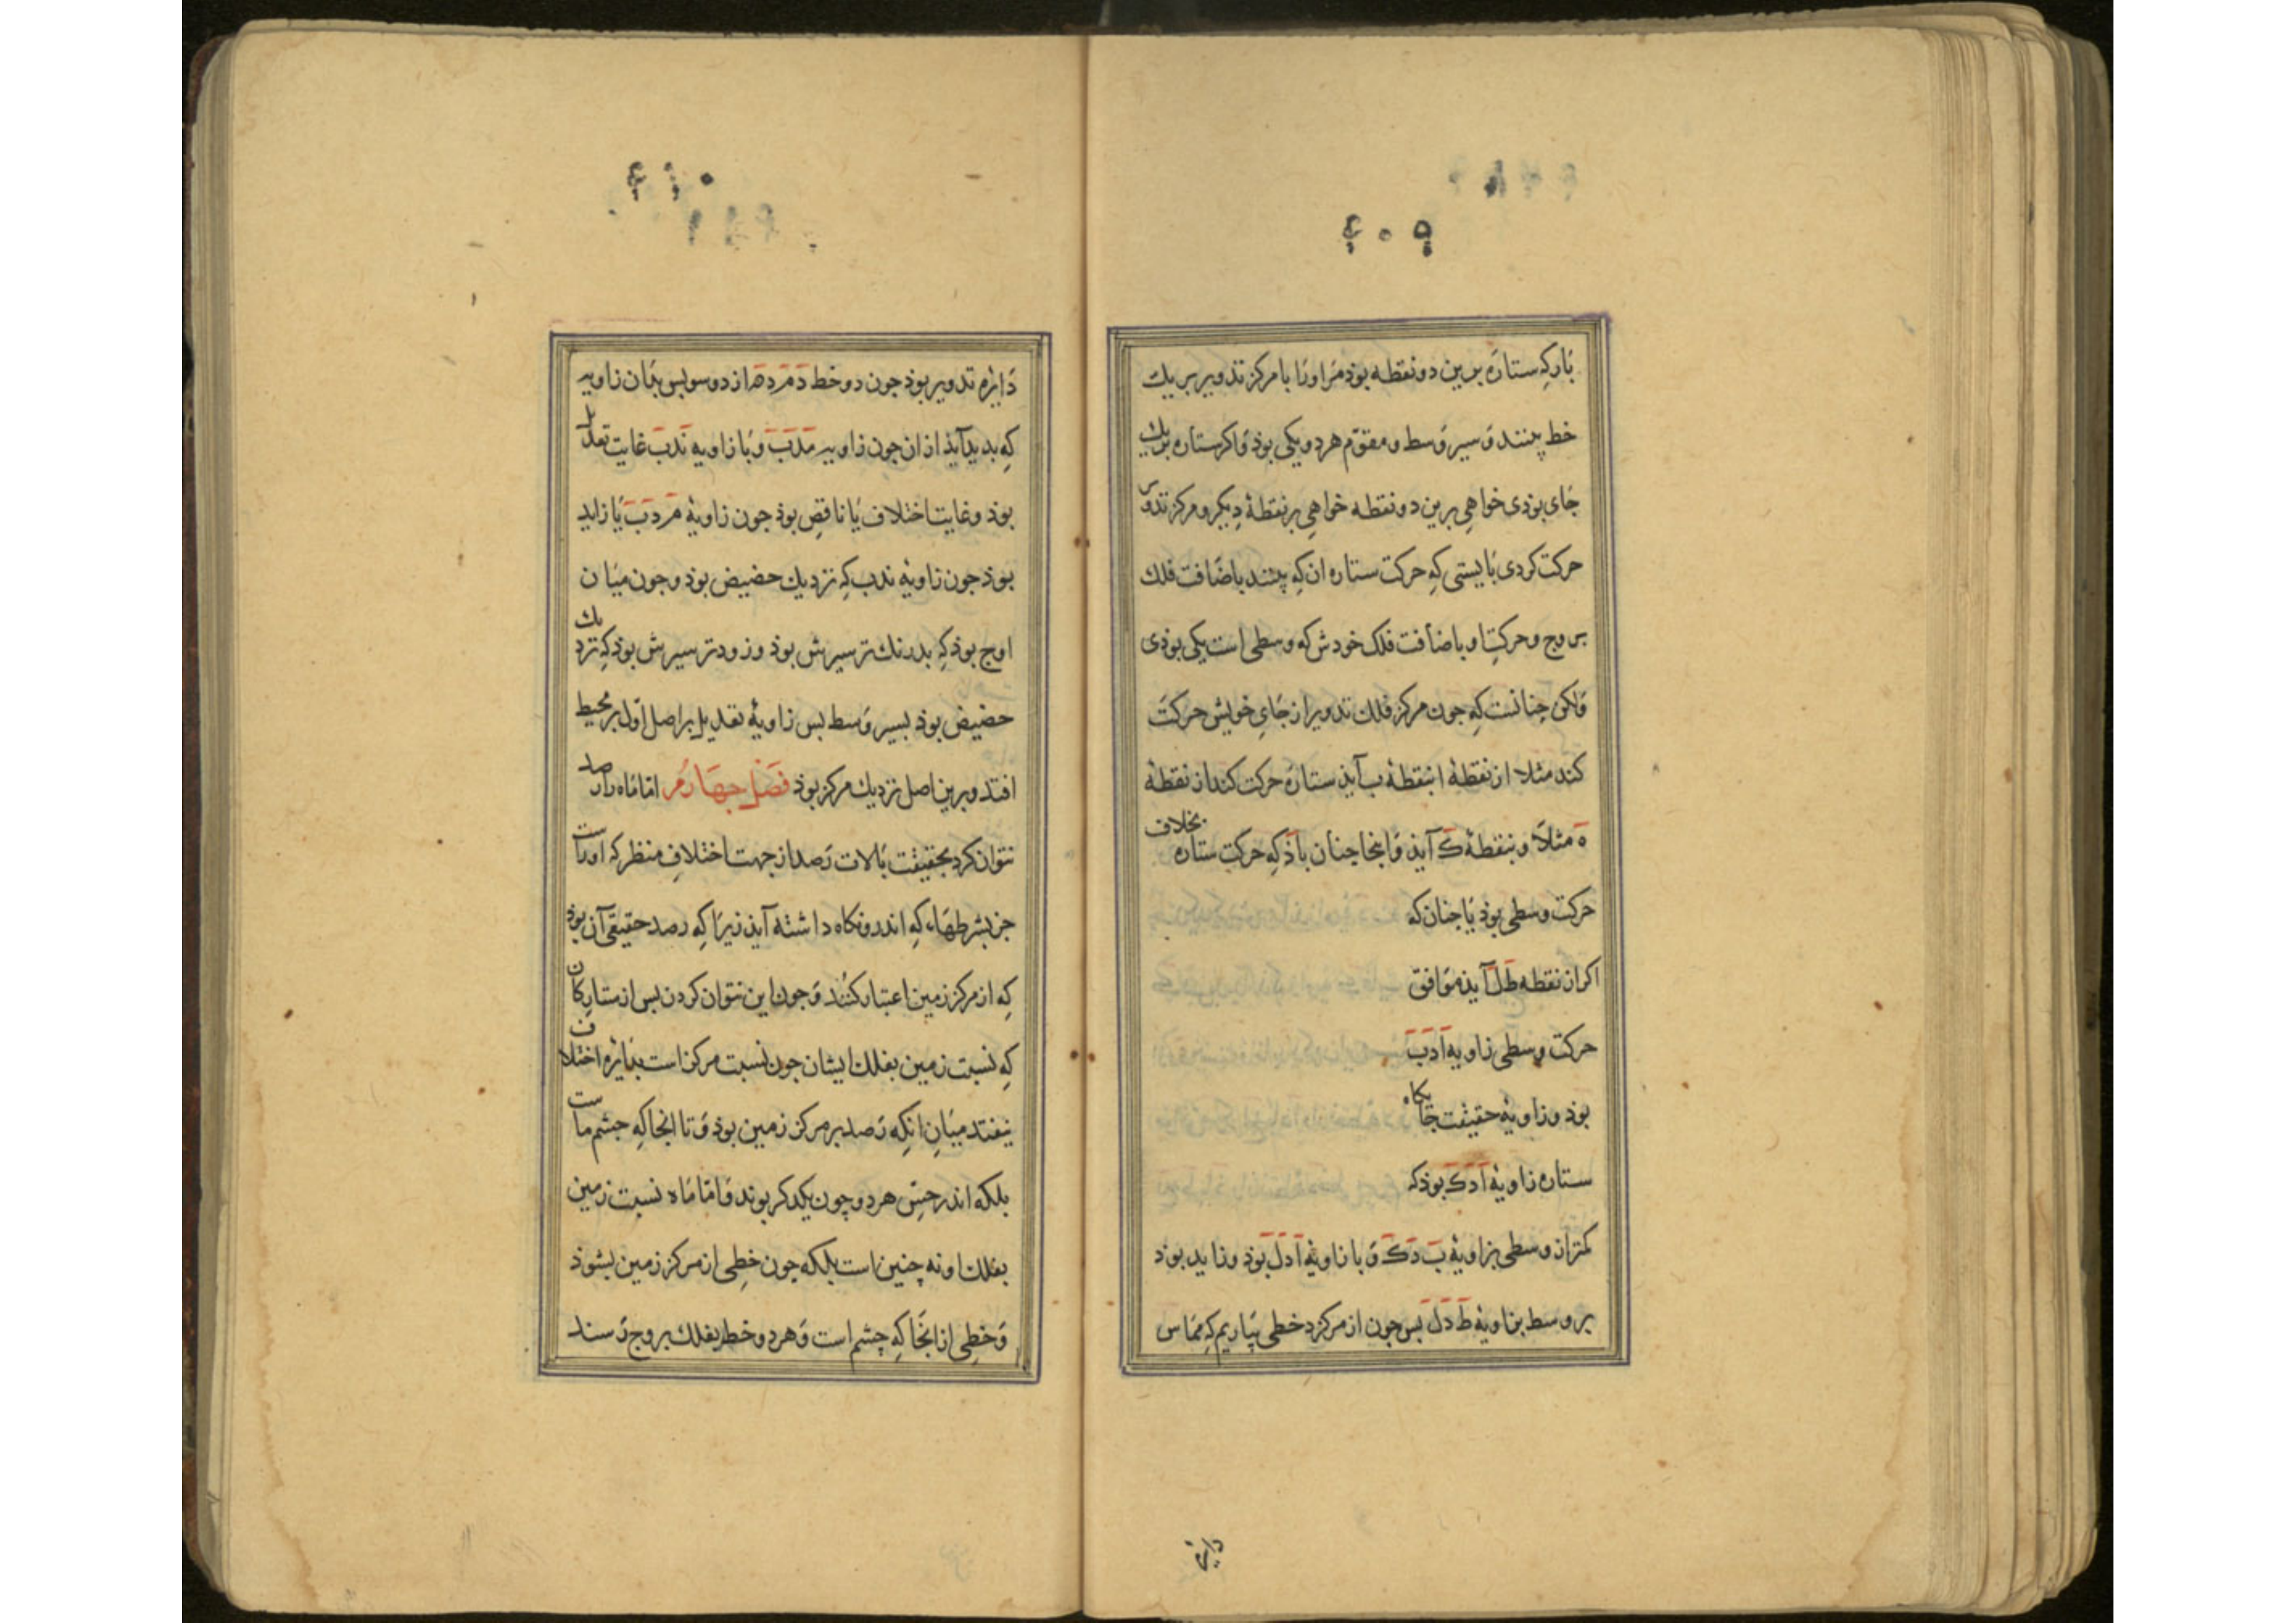 ٤٠٩
بار که ستاره برین دو نقطه بوذ مر اورا با مرکز تدویر بر یک
خط بینند و سیر وسط و مقوّم هر دو یکی بوذ و اکر ستاره بر یک
جای بوذی خواهی برین دو نقطه خواهی بر نقطهٔ دیکر و مرکز تدویر
حرکت کردی بایستی که حرکت ستاره ان که بینند باضافت فلک
بروج و حرکت او باضافت فلک خودش که وسطی است یکی بوذی
و لکن چنانست که جون مرکز فلک تدویر از جای خویش حرکت
کند مثلا از نقطهٔ ا بنقطهٔ ب آیذ ستاره حرکت کند از نقطهٔ
ه مثلا و بنقطهٔ ک آیذ و اینجا جنان باذ که حرکت ستاره بخلاف
حرکت وسطی بوذ یا جنان که
اکر از نقطه ط ل آیذ موافق
حرکت وسطی زاویه ا د ب
بوذ و زاویهٔ حقیقت جایکاه
ستاره زاویهٔ ا د ک بوذ که
کمتر از وسطی بزاویهٔ ب د ک و با زاویهٔ ا د ل بوذ و زاید بوذ
بر وسط بزاویهٔ ط د ل بس جون از مرکز د خطی بیاریم که مماس
دایرهٔ
٤١٠
دایرهٔ تدویر بوذ جون دو خط د م ر د ه از دو سو بس بدان زاویه
که بدید آیذ از ان جون زاویه م د ب و با زاویه ن د ب غایت تعدیل
بوذ و غایت اختلاف یا ناقص بوذ جون زاویهٔ م ر د ب یا زاید
بوذ جون زاویهٔ ن د ب که نزدیک حضیض بوذ و جون میان
اوج بوذ که بدرنک تر سیرش بوذ و زودتر سیرش بوذ که نزدیک
حضیض بوذ بسیر وسط بس زاویهٔ تعدیل بر اصل اوّل بر محیط
افتد و برین اصل نزدیک مرکز بوذ فصل جهارم امّا ماه را رصد
نتوان کرد بحقیقت بالات رصد از جهت اختلاف منظر که اوراست
جز بشرطهاء که اندرو نکاه داشته آیذ زیرا که رصد حقیقی آن بوذ
که از مرکز زمین اعتبار کنند و جون این نتوان کردن بس از ستارکان
که نسبت زمین بفلک ایشان جون نسبت مرکز است بدایره اختلاف
نیفتد میان انکه رصد بر مرکز زمین بوذ و تا انجا که جشم ماست
بلکه اندر حسّ هر دو چون یکدکر بوند و امّا ماه نسبت زمین
بفلک او نه چنین است بلکه جون خطی از مرکز زمین بشوذ
و خطی از انجا که چشم است و هر دو خط بفلک بروج رسند